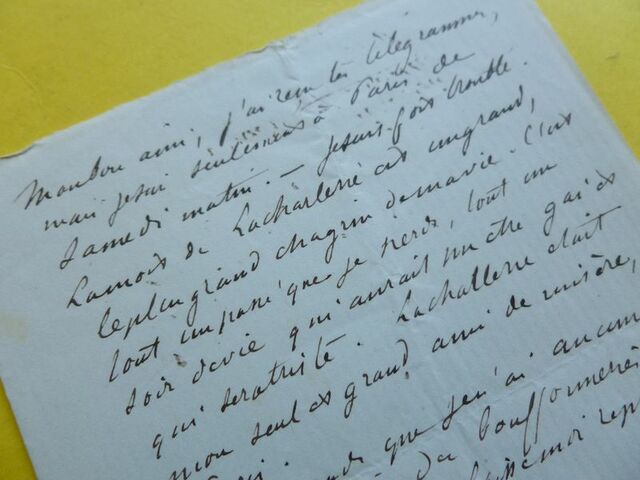 Mon bon ami, j'ai reçu tes télégrammes,
mais je suis seulement à Paris de
samedi matin. — Je suis fort troublé.
La mort de Lacharlerie est un grand,
le plus grand chagrin de ma vie. C'est
tout un passé que je perds, tout un
soir de vie qui aurait pu être gai et
qui sera triste. Lachallerie était
mon seul et grand ami de misère,
que je n'ai aucun
de bouffonneries
laisse moi rep